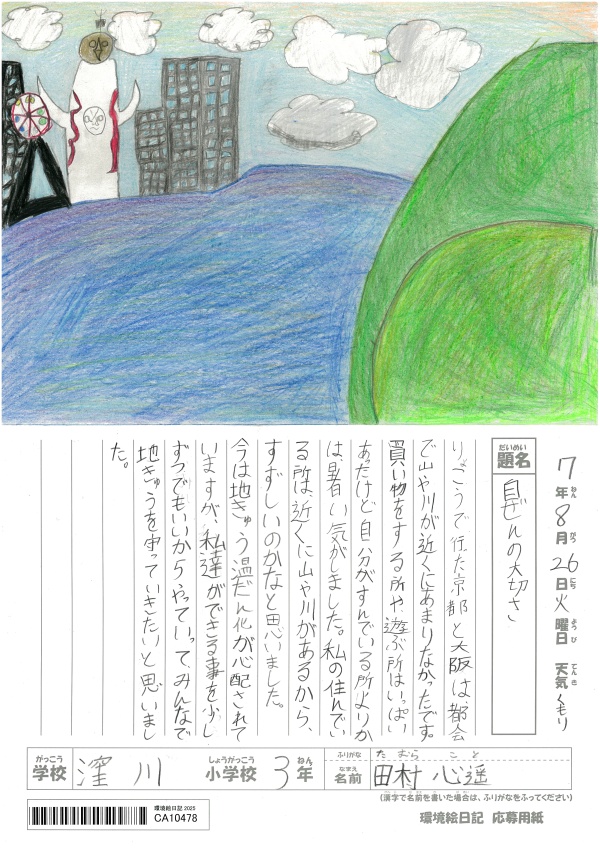 7年8月26日火曜日 天気くもり
ねん がつ にち ようび てんき
だいめい
題名
自ぜんの大切さ
りょこうで行た京都と大阪は、都会
で山や川が近くにあまりなかったです。
買い物をする所や、遊ぶ所はいっぱい
あったけど自分がすんでいる所よりか
は、暑い気がしました。私の住んでい
る所は、近くに山や川があるから、
すずしいのかなと思いました。
今は地きゅう温だん化が心配されて
いますが、私達ができる事を少し
ずつでもいいからやっていって、みんなで
地きゅうを守っていきたいと思いまし
た。
がっこう
学校 窪川
しょうがっこう ねん
小学校 3年
ふりがな たむら こと
なまえ
名前 田村 心遥
(漢字で名前を書いた場合は、ふりがなをふってください)
環境絵日記 2025
CA10478
環境絵日記 応募用紙